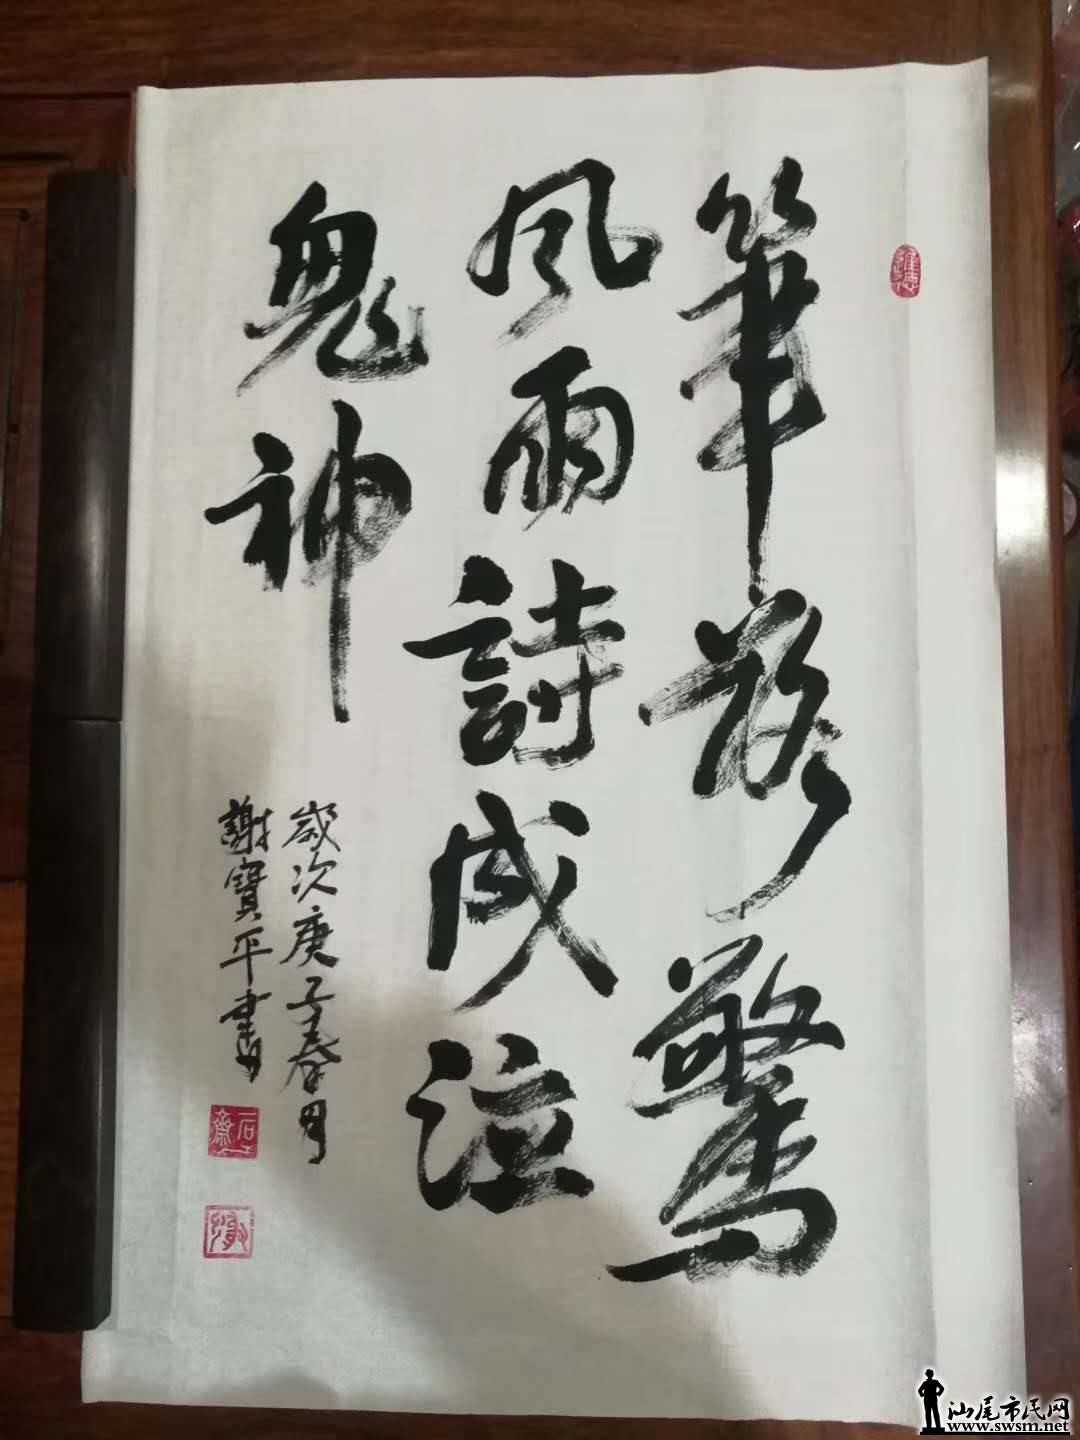 筆落驚
風雨詩成泣
鬼神
歲次庚子春月
謝寶平書
汕尾市民网
www.swsm.net